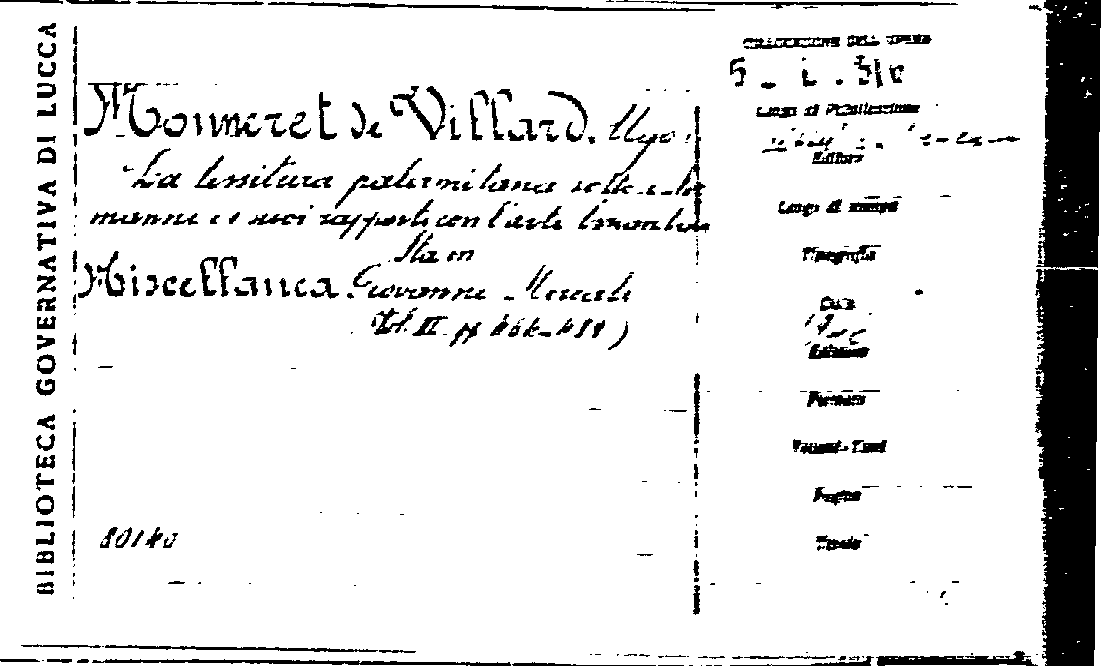 BIBLIOTECA GOVERNATIVA DI LUCCA
COLLOCAZIONE DELL'OPERA
Monneret de Villard, Ugo
La tessitura palermitana sotto i nor
manni e i suoi rapporti con l'arte bizantina
Sta in
Miscellanea Giovanni Mercati
Vol. III pp
80140
Luogo di Pubblicazione
Editore
Luogo di stampa
Tipografia
Data
Edizione
Formato
Volumi - Tomi
Pagine
Tavole